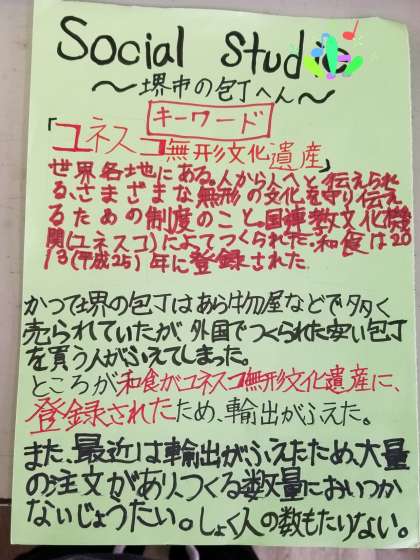 Social Studie
～堺市の包丁へん～
キーワード
「ユネスコ無形文化遺産」
世界各地にある、人から人へと伝えられ
る、さまざまな無形の文化を守り伝え
るための制度のこと。国連教文化機
関(ユネスコ)によてつくられた。和食は20
13(平成25)年に登録された
かつて堺の包丁はあら物屋などで多く
売られていたが外国でつくられた安い包丁
を買う人がふえてしまった。
ところが和食がユネスコ無形文化遺産に、
登録されたため、輸出がふえた。
また、最近は輸出がふえたため、大量
の注文があり、つくる数量においつか
ないじょうたい。しょく人の数もたりない。